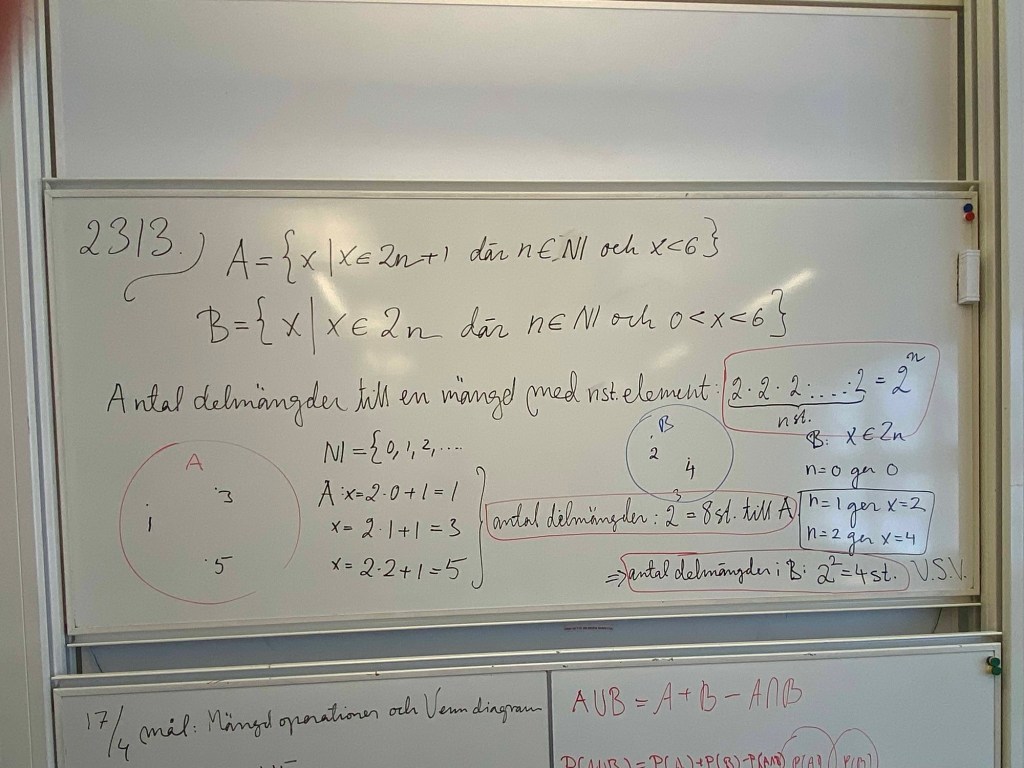 2313.)
A={x|x∈2n+1 där n∈ℕ och x<6}
B={x|x∈2n där n∈ℕ och 0<x<6}
Antal delmängder till en mängd med n st. element: 2·2·2·...·2 = 2ⁿ
n st.
A
1
3
5
ℕ={0,1,2,....
A: x=2·0+1=1
x=2·1+1=3
x=2·2+1=5
antal delmängder: 2³=8 st. till A
B
2
4
B: x∈2n
n=0 ger 0
n=1 ger x=2
n=2 ger x=4
⇒ antal delmängder i B: 2²=4 st. V.S.V.
17/4 mål: Mängdoperationer och Venndiagram
A∪B = A+B − A∩B
P(A∪B) = P(A)+P(B)−P(A∩B) P(A) P(B)